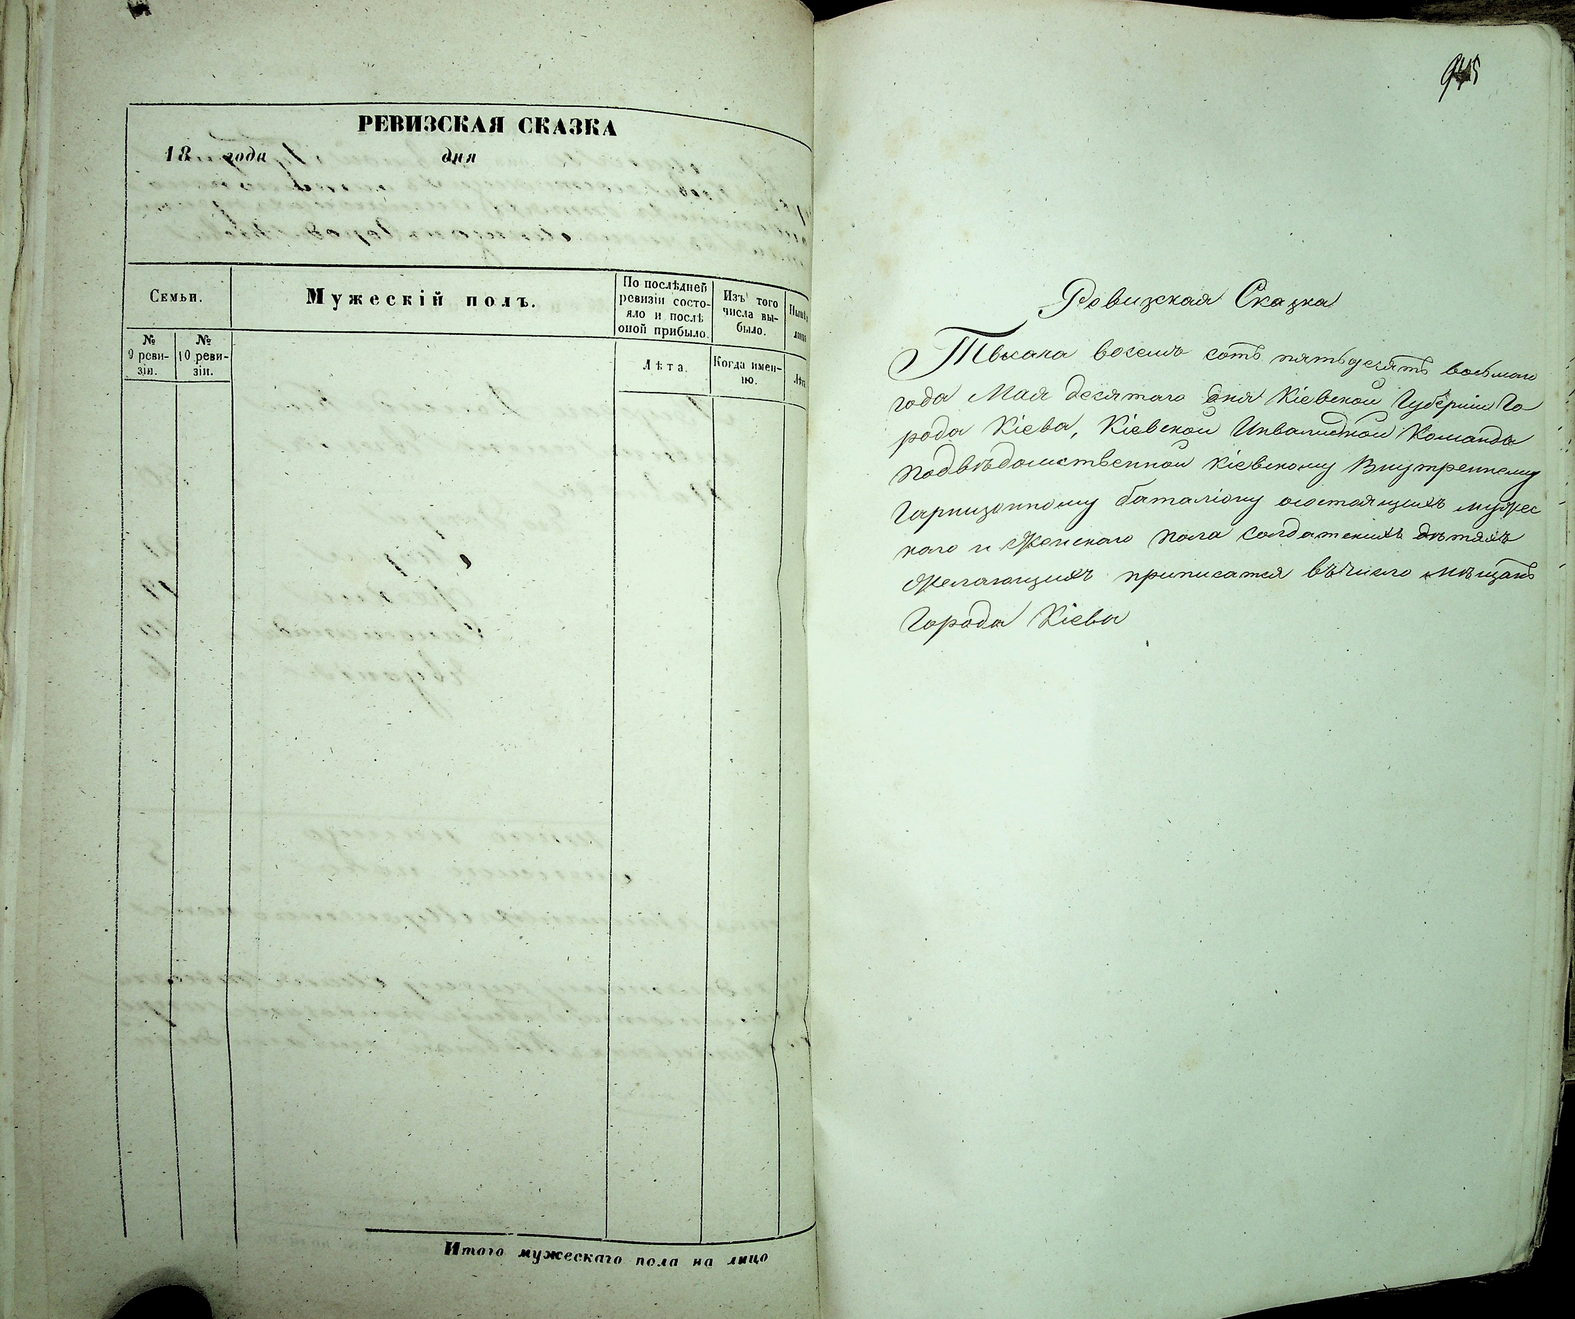 РЕВИЗСКАЯ СКАЗКА
18 года дня
Семьи.
Мужескій полъ.
По послѣдней
ревизіи состо-
яло и послѣ
оной прибыло.
Изъ того
числа вы-
было.
№
9 реви-
зіи.
№
10 реви-
зіи.
Лѣта.
Когда имен-
но.
Итого мужескаго пола на лицо
Ревизская Сказка
Тысяча восемь сотъ пятьдесятъ восьмаго
года Мая десятаго дня Кіевской Губерніи Го
рода Кіева, Кіевской Инвалидной Команды
подвѣдомственной Кіевскому Внутреннему
Гарнизонному баталіону о состоящихъ мужес
каго и Женскаго пола солдатскихъ дѣтяхъ
Желающихъ приписатся въ число мѣщанъ
Города Кіева